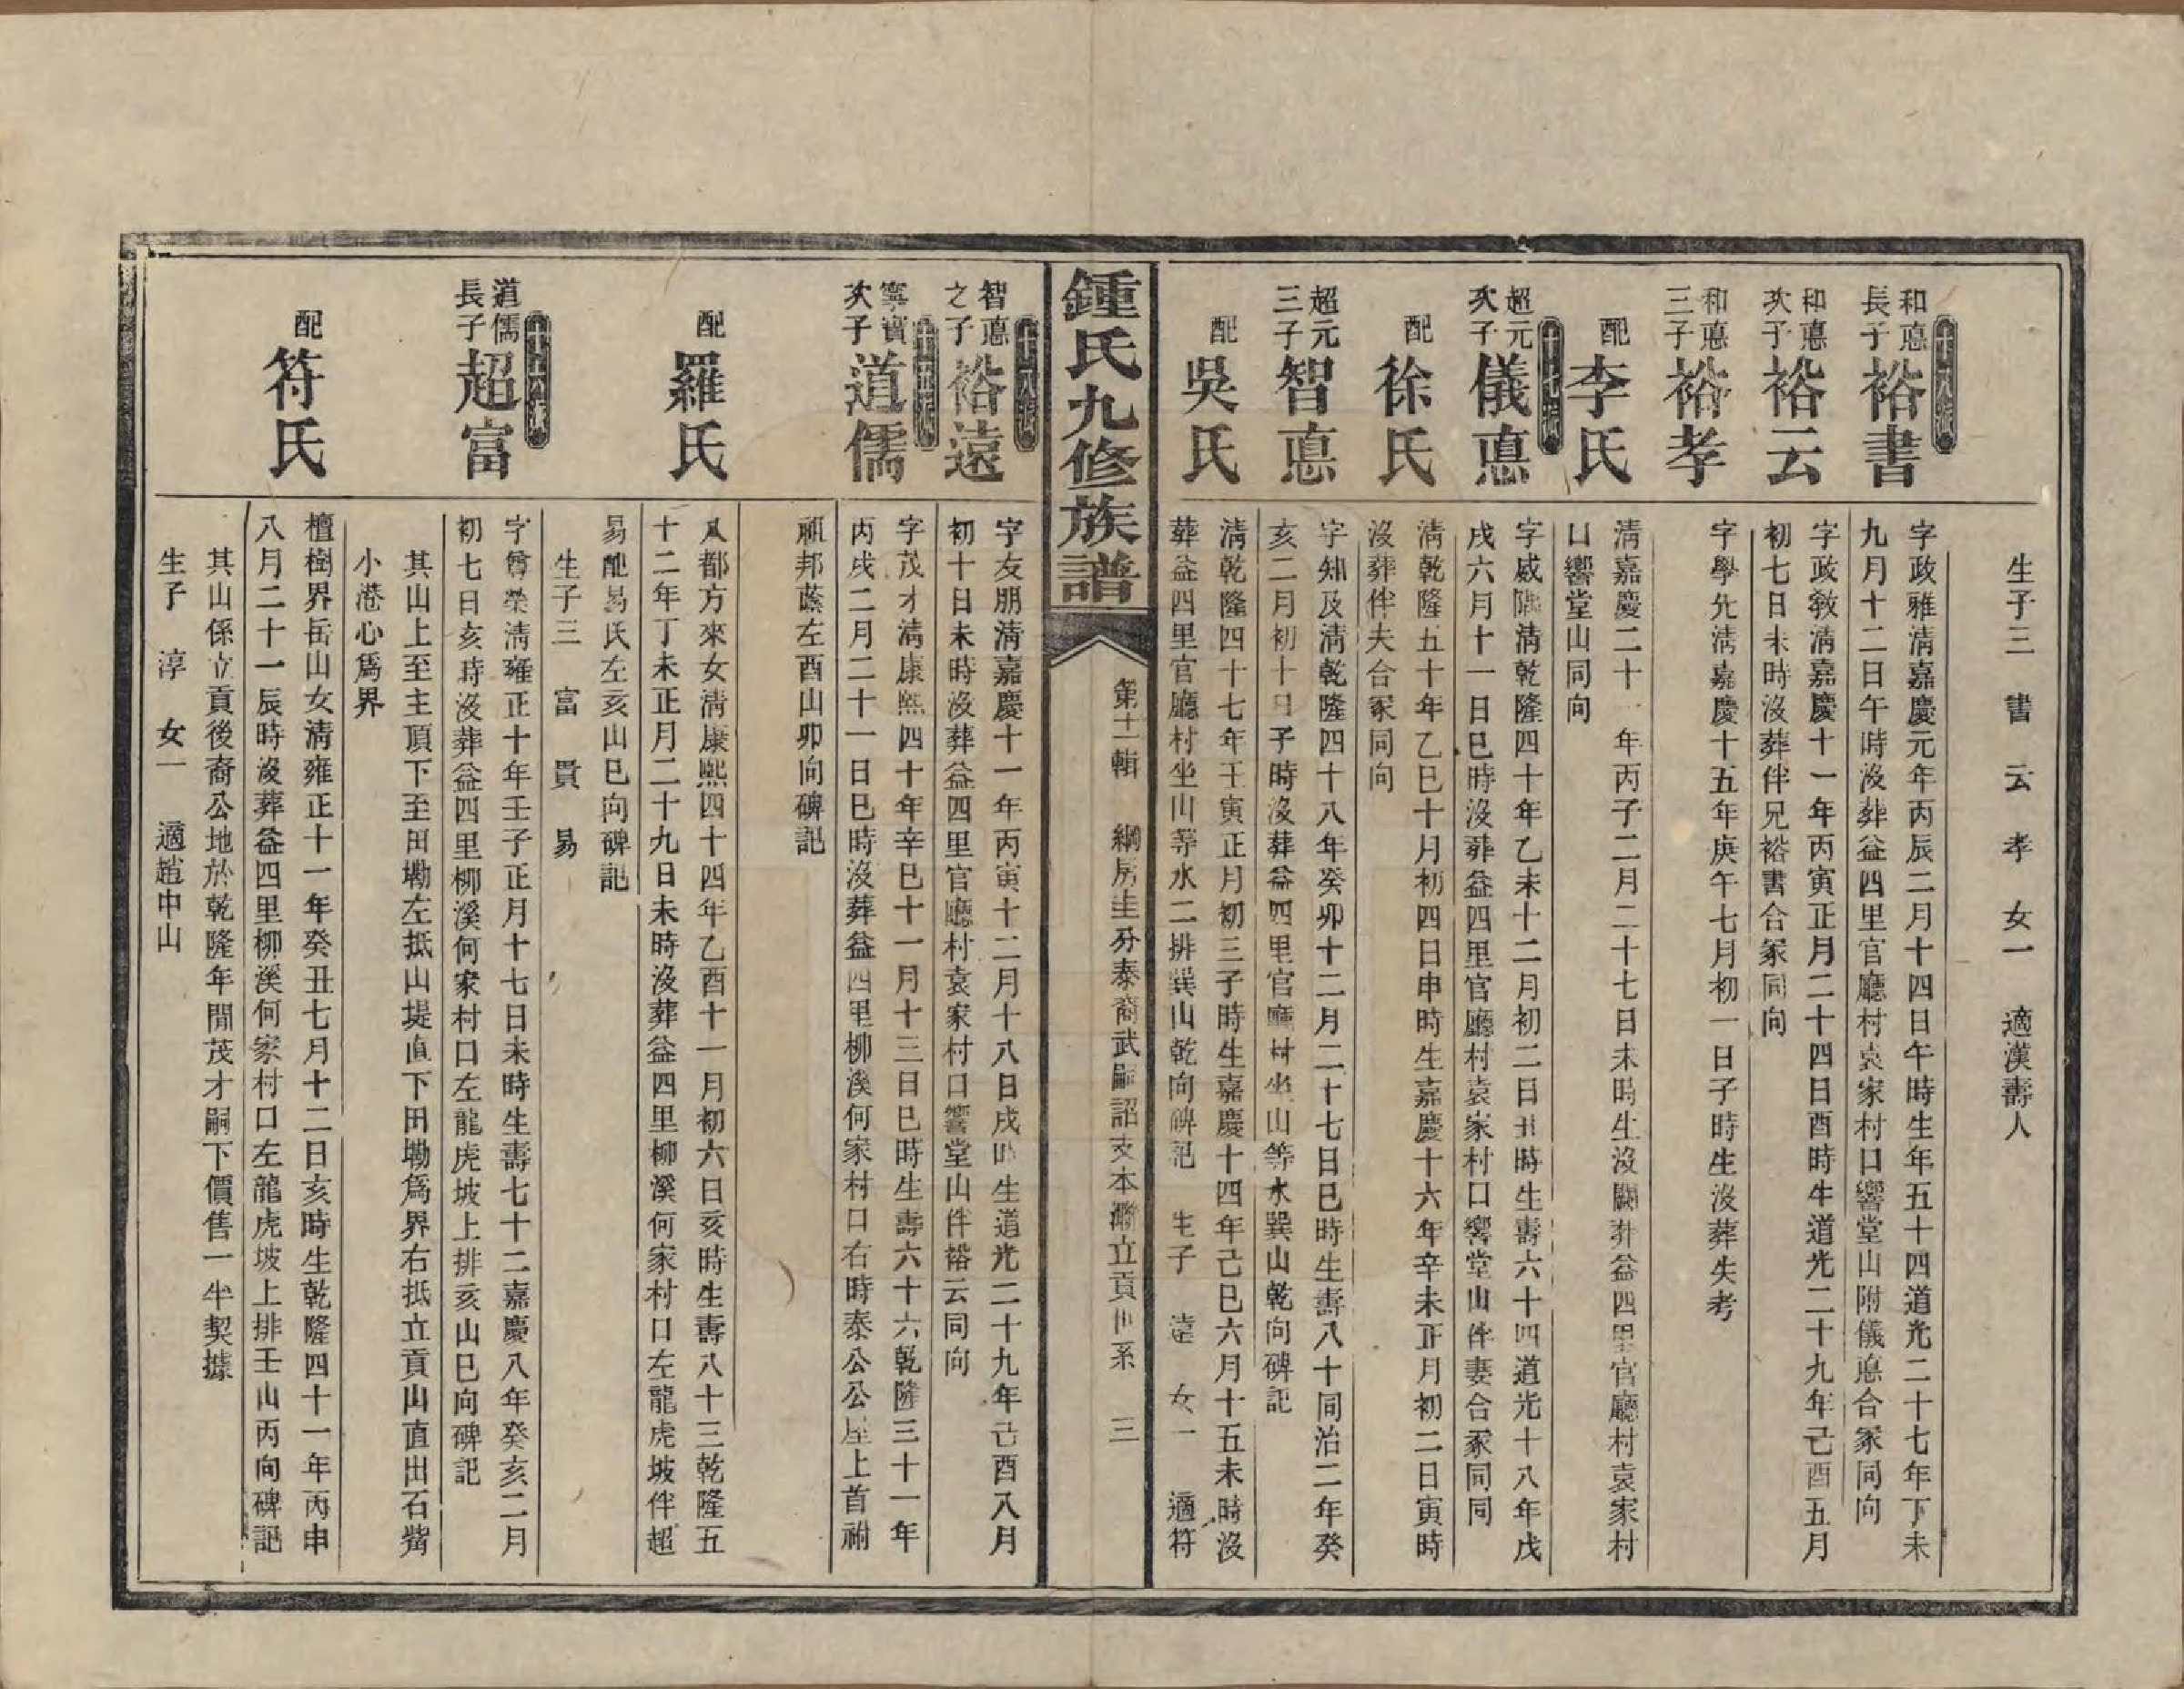 生子三　書　云　孝　女一　適漢壽人
十八派
和悳長子　裕書
字政雅清嘉慶元年丙辰二月十四日午時生年五十四道光二十七年下未
九月十二日午時沒葬益四里官廳村袁家村口響堂山附儀悳合冢同向
和悳次子　裕云
字政敎清嘉慶十一年丙寅正月二十四日酉時生道光二十九年己酉五月
初七日未時沒葬伴兄裕書合冢同向
和悳三子　裕孝
字學允清嘉慶十五年庚午七月初一日子時生沒葬失考
配　李氏
清嘉慶二十一年丙子二月二十七日未時生沒闕葬益四里官廳村袁家村
口響堂山同向
十七派
超元次子　儀悳
字威隅清乾隆四十年乙未十二月初二日丑時生壽六十四道光十八年戊
戌六月十一日巳時沒葬益四里官廳村袁家村口響堂山伴妻合冢同同
配　徐氏
清乾隆五十年乙巳十月初四日申時生嘉慶十六年辛未正月初二日寅時
沒葬伴夫合冢同向
超元三子　智悳
字知及清乾隆四十八年癸卯十二月二十七日巳時生壽八十同治二年癸
亥二月初十日子時沒葬益四里官廳村坐山等水巽山乾向碑記
配　吳氏
清乾隆四十七年壬寅正月初三子時生嘉慶十四年己巳六月十五未時沒
葬益四里官廳村坐山等水二排巽山乾向碑記　生子　遠　女一　適符
鍾氏九修族譜
第十一輯　綱房圭分泰裔武嗣詔支本瀞立貢世系　三
十八派
智悳之子　裕遠
字友朋清嘉慶十一年丙寅十二月十八日戌時生道光二十九年己酉八月
初十日未時沒葬益四里官廳村袁家村口響堂山伴裕云同向
十五派
寧賓次子　道儒
字茂才清康熙四十年辛巳十一月十三日巳時生壽六十六乾隆三十一年
丙戌二月二十一日巳時沒葬益四里柳溪何家村口右時泰公公屋上首祔
祖邦蔭左酉山卯向碑記
配　羅氏
八都方來女清康熙四十四年乙酉十一月初六日亥時生壽八十三乾隆五
十二年丁未正月二十九日未時沒葬益四里柳溪何家村口左龍虎坡伴超
易配易氏左亥山巳向碑記
生子三　富　貫　易
十六派
道儒長子　超富
字尊榮清雍正十年壬子正月十七日未時生壽七十二嘉慶八年癸亥二月
初七日亥時沒葬益四里柳溪何家村口左龍虎坡上排亥山巳向碑記
其山上至主頂下至田塝左抵山堤直下田塝爲界右抵立貢山直出石觜
小港心爲界
配　符氏
檀樹界岳山女清雍正十一年癸丑七月十二日亥時生乾隆四十一年丙申
八月二十一辰時沒葬益四里柳溪何家村口左龍虎坡上排壬山丙向碑記
其山係立貢後裔公地於乾隆年間茂才嗣下價售一半契據
生子　淳　女一　適趙中山